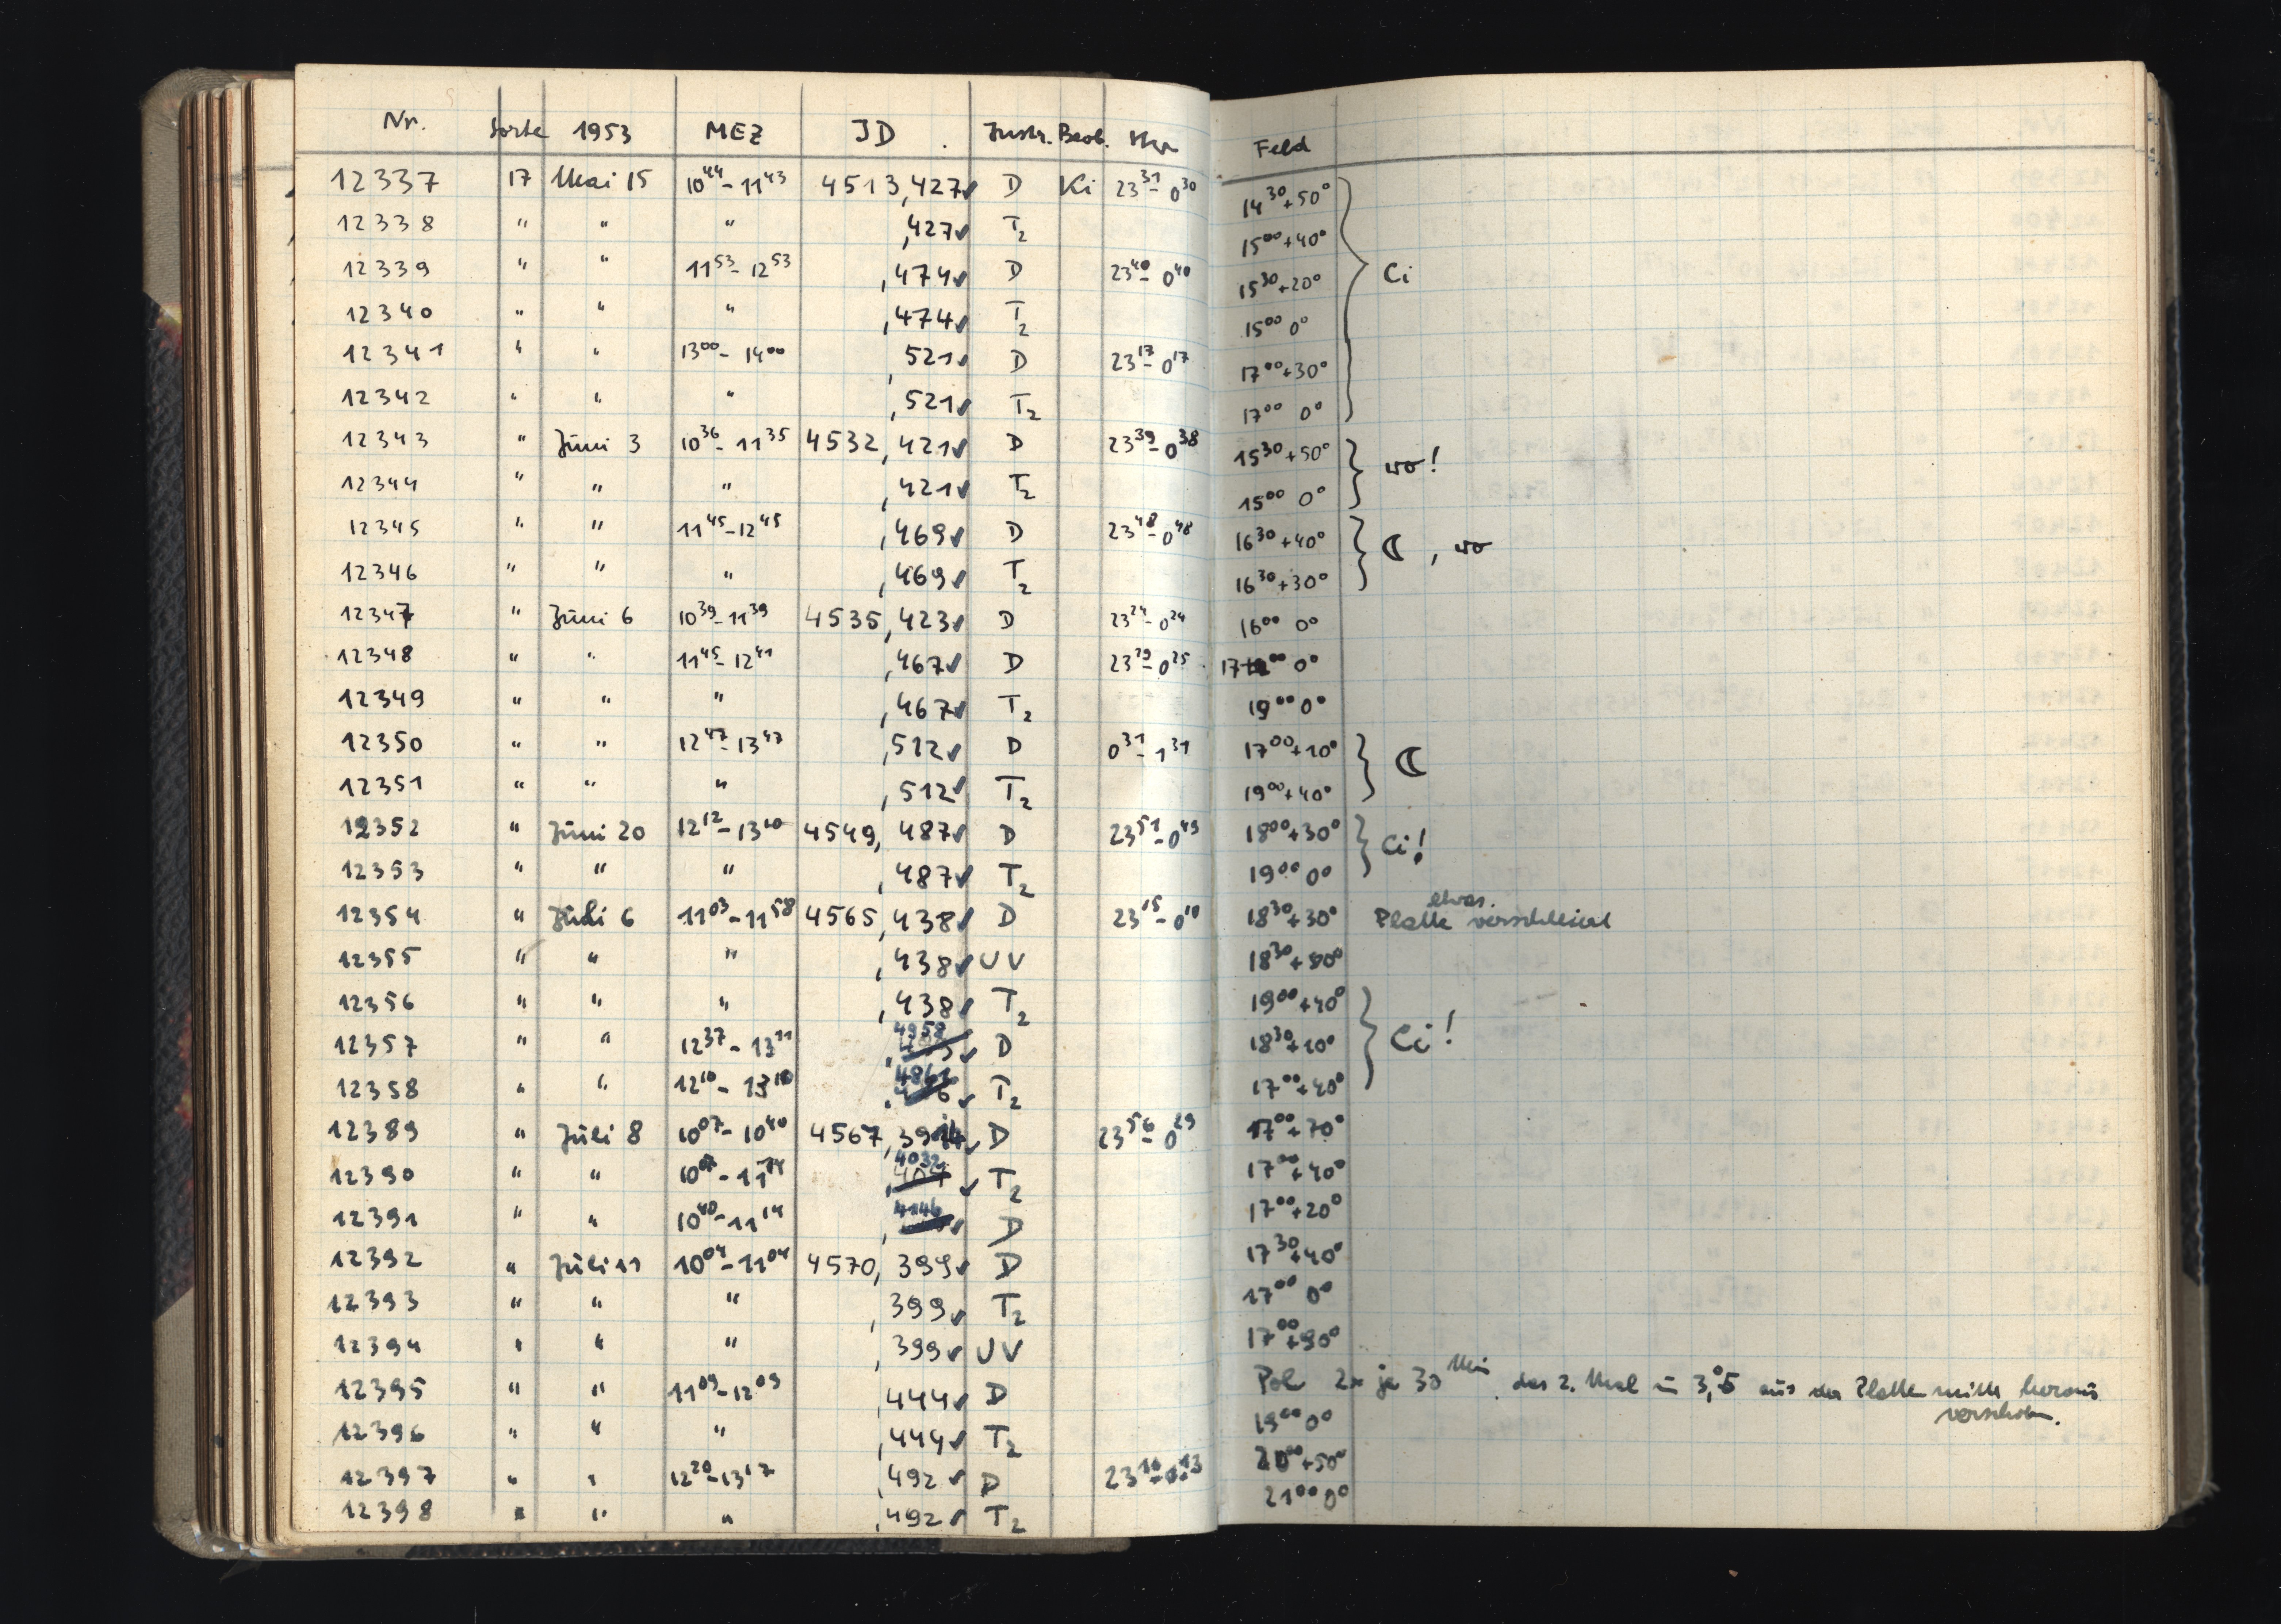 Nr. Sorte 1953 MEZ JD Instr. Beob. Feld
12337 17 Mai 15 10⁴⁴-11⁴³ 4513,427✓ D Ki 23³¹-0³⁰ 14³⁰+50°
12338 " " " ,427✓ T₂ 15⁰⁰+40°
12339 " " 11⁵³-12⁵³ ,474✓ D 23⁴⁰-0⁴⁰ 15³⁰+20° Ci
12340 " " " ,474✓ T₂ 15⁰⁰ 0°
12341 " " 13⁰⁰-14⁰⁰ ,521✓ D 23¹⁷-0¹⁷ 17⁰⁰+30°
12342 " " " ,521✓ T₂ 17⁰⁰ 0°
12343 " Juni 3 10³⁶-11³⁵ 4532,421✓ D 23³⁹-0³⁸ 15³⁰+50° wo!
12344 " " " ,421✓ T₂ 15⁰⁰ 0°
12345 " " 11⁴⁵-12⁴⁵ ,469✓ D 23⁴⁸-0⁴⁸ 16³⁰+40° ☾, wo
12346 " " " ,469✓ T₂ 16³⁰+30°
12347 " Juni 6 10³⁹-11³⁹ 4535,423✓ D 23²⁴-0²⁴ 16⁰⁰ 0°
12348 " " 11⁴⁵-12⁴¹ ,467✓ D 23²⁹-0²⁵ 17⁰⁰ 0°
12349 " " " ,467✓ T₂ 19⁰⁰ 0°
12350 " " 12⁴⁷-13⁴⁷ ,512✓ D 0³¹-1³¹ 17⁰⁰+10° ☾
12351 " " " ,512✓ T₂ 19⁰⁰+40°
12352 " Juni 20 12¹²-13¹⁰ 4549,487✓ D 23⁵¹-0⁴⁹ 18⁰⁰+30° Ci!
12353 " " " ,487✓ T₂ 19⁰⁰ 0°
12354 " Juli 6 11⁰³-11⁵⁸ 4565,438✓ D 23¹⁵-0¹⁰ 18³⁰+30° etwas Platte verschleiert
12355 " " " ,438✓ UV 18³⁰
12356 " " " ,438✓ T₂ 19⁰⁰+40°
12357 " " 12³⁷-13¹¹ ,4958✓ D 18³⁰+10° Ci!
12358 " " 12¹⁰-13¹⁰ ,4861✓ T₂ 17⁰⁰+40°
12389 " Juli 8 10⁰⁷-10⁴⁰ 4567,3914✓ D 23⁵⁶-0²⁹ 17⁰⁰+70°
12390 " " 10⁰⁷-11¹⁴ ,4032✓ T₂ 17⁰⁰+40°
12391 " " 10⁴⁰-11¹⁴ ,4146✓ D 17⁰⁰+20°
12392 " Juli 11 10⁰⁴-11⁰⁴ 4570,399✓ D 17³⁰+40°
12393 " " " ,399✓ T₂ 17⁰⁰ 0°
12394 " " " ,399✓ UV 17⁰⁰+90°
12395 " " 11⁰⁹-12⁰⁹ ,444✓ D Pol 2x je 30 Min. das 2. Mal um 3,°5 aus der Plattenmitte heraus
verschoben.
12396 " " " ,444✓ T₂ 19⁰⁰ 0°
12397 " " 12²⁰-13¹⁷ ,492✓ D 20⁰⁰+50°
12398 " " " ,492✓ T₂ 21⁰⁰ 0°